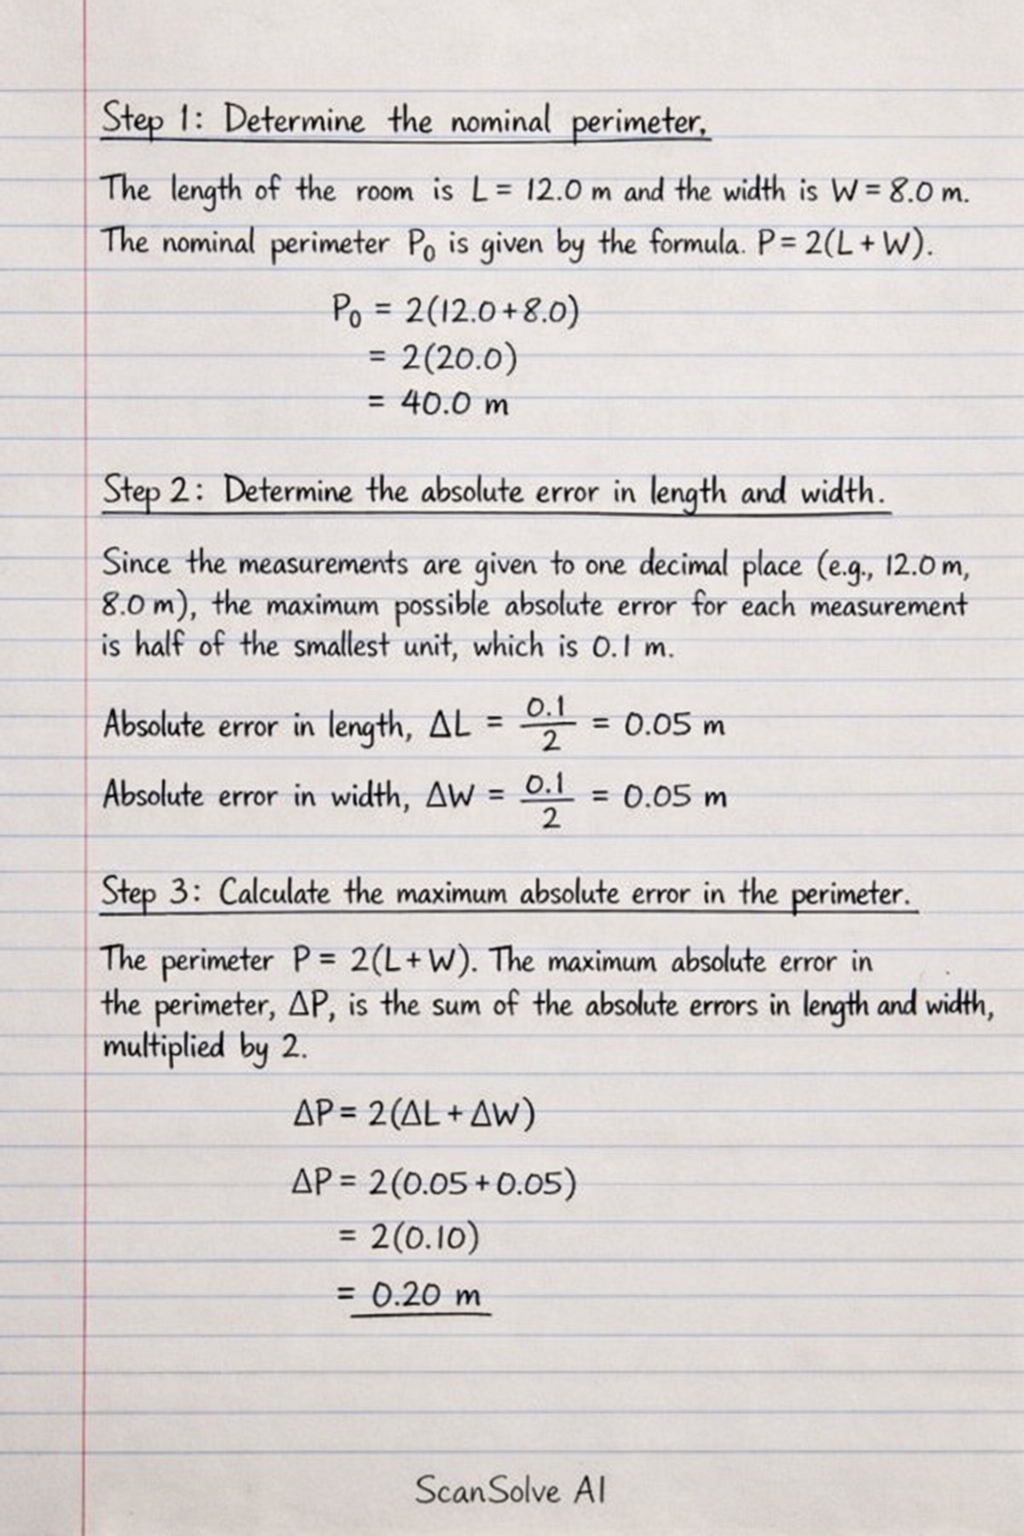 Step 1: Determine the nominal perimeter.
The length of the room is L = 12.0 m and the width is W = 8.0 m.
The nominal perimeter P₀ is given by the formula. P = 2(L + W).
P₀ = 2(12.0 + 8.0)
= 2(20.0)
= 40.0 m
Step 2: Determine the absolute error in length and width.
Since the measurements are given to one decimal place (e.g., 12.0 m,
8.0 m), the maximum possible absolute error for each measurement
is half of the smallest unit, which is 0.1 m.
Absolute error in length, ΔL = 0.1/2 = 0.05 m
Absolute error in width, ΔW = 0.1/2 = 0.05 m
Step 3: Calculate the maximum absolute error in the perimeter.
The perimeter P = 2(L + W). The maximum absolute error in
the perimeter, ΔP, is the sum of the absolute errors in length and width,
multiplied by 2.
ΔP = 2(ΔL + ΔW)
ΔP = 2(0.05 + 0.05)
= 2(0.10)
= 0.20 m
ScanSolve AI